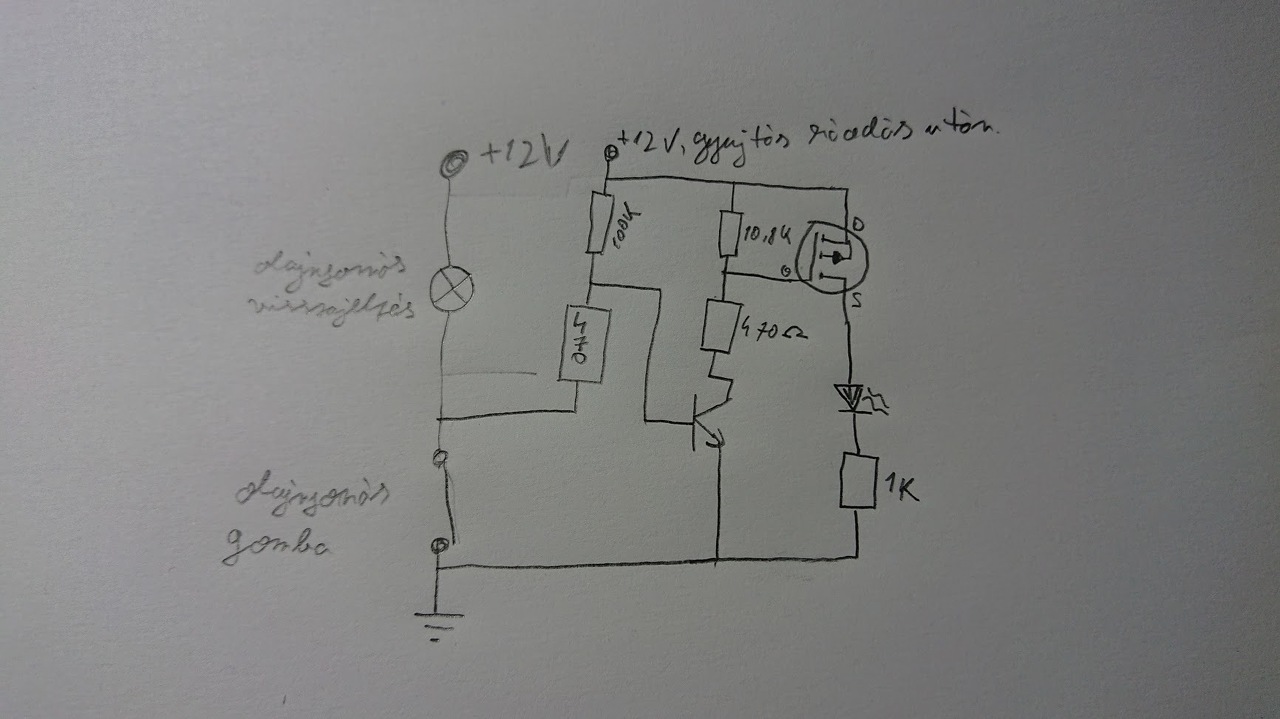 +12V
+12V, gyujtás ráadás után.
100K
10,8K
D
G
S
olajnyomás
visszajelzés
470
470Ω
olajnyomás
gomba
1K